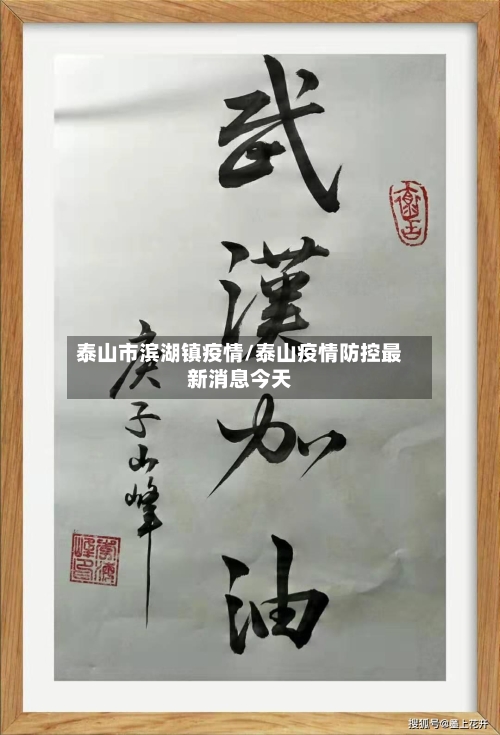 武漢加油
庚子山峰
泰山市滨湖镇疫情/泰山疫情防控最
新消息今天
搜狐号@墨上花开